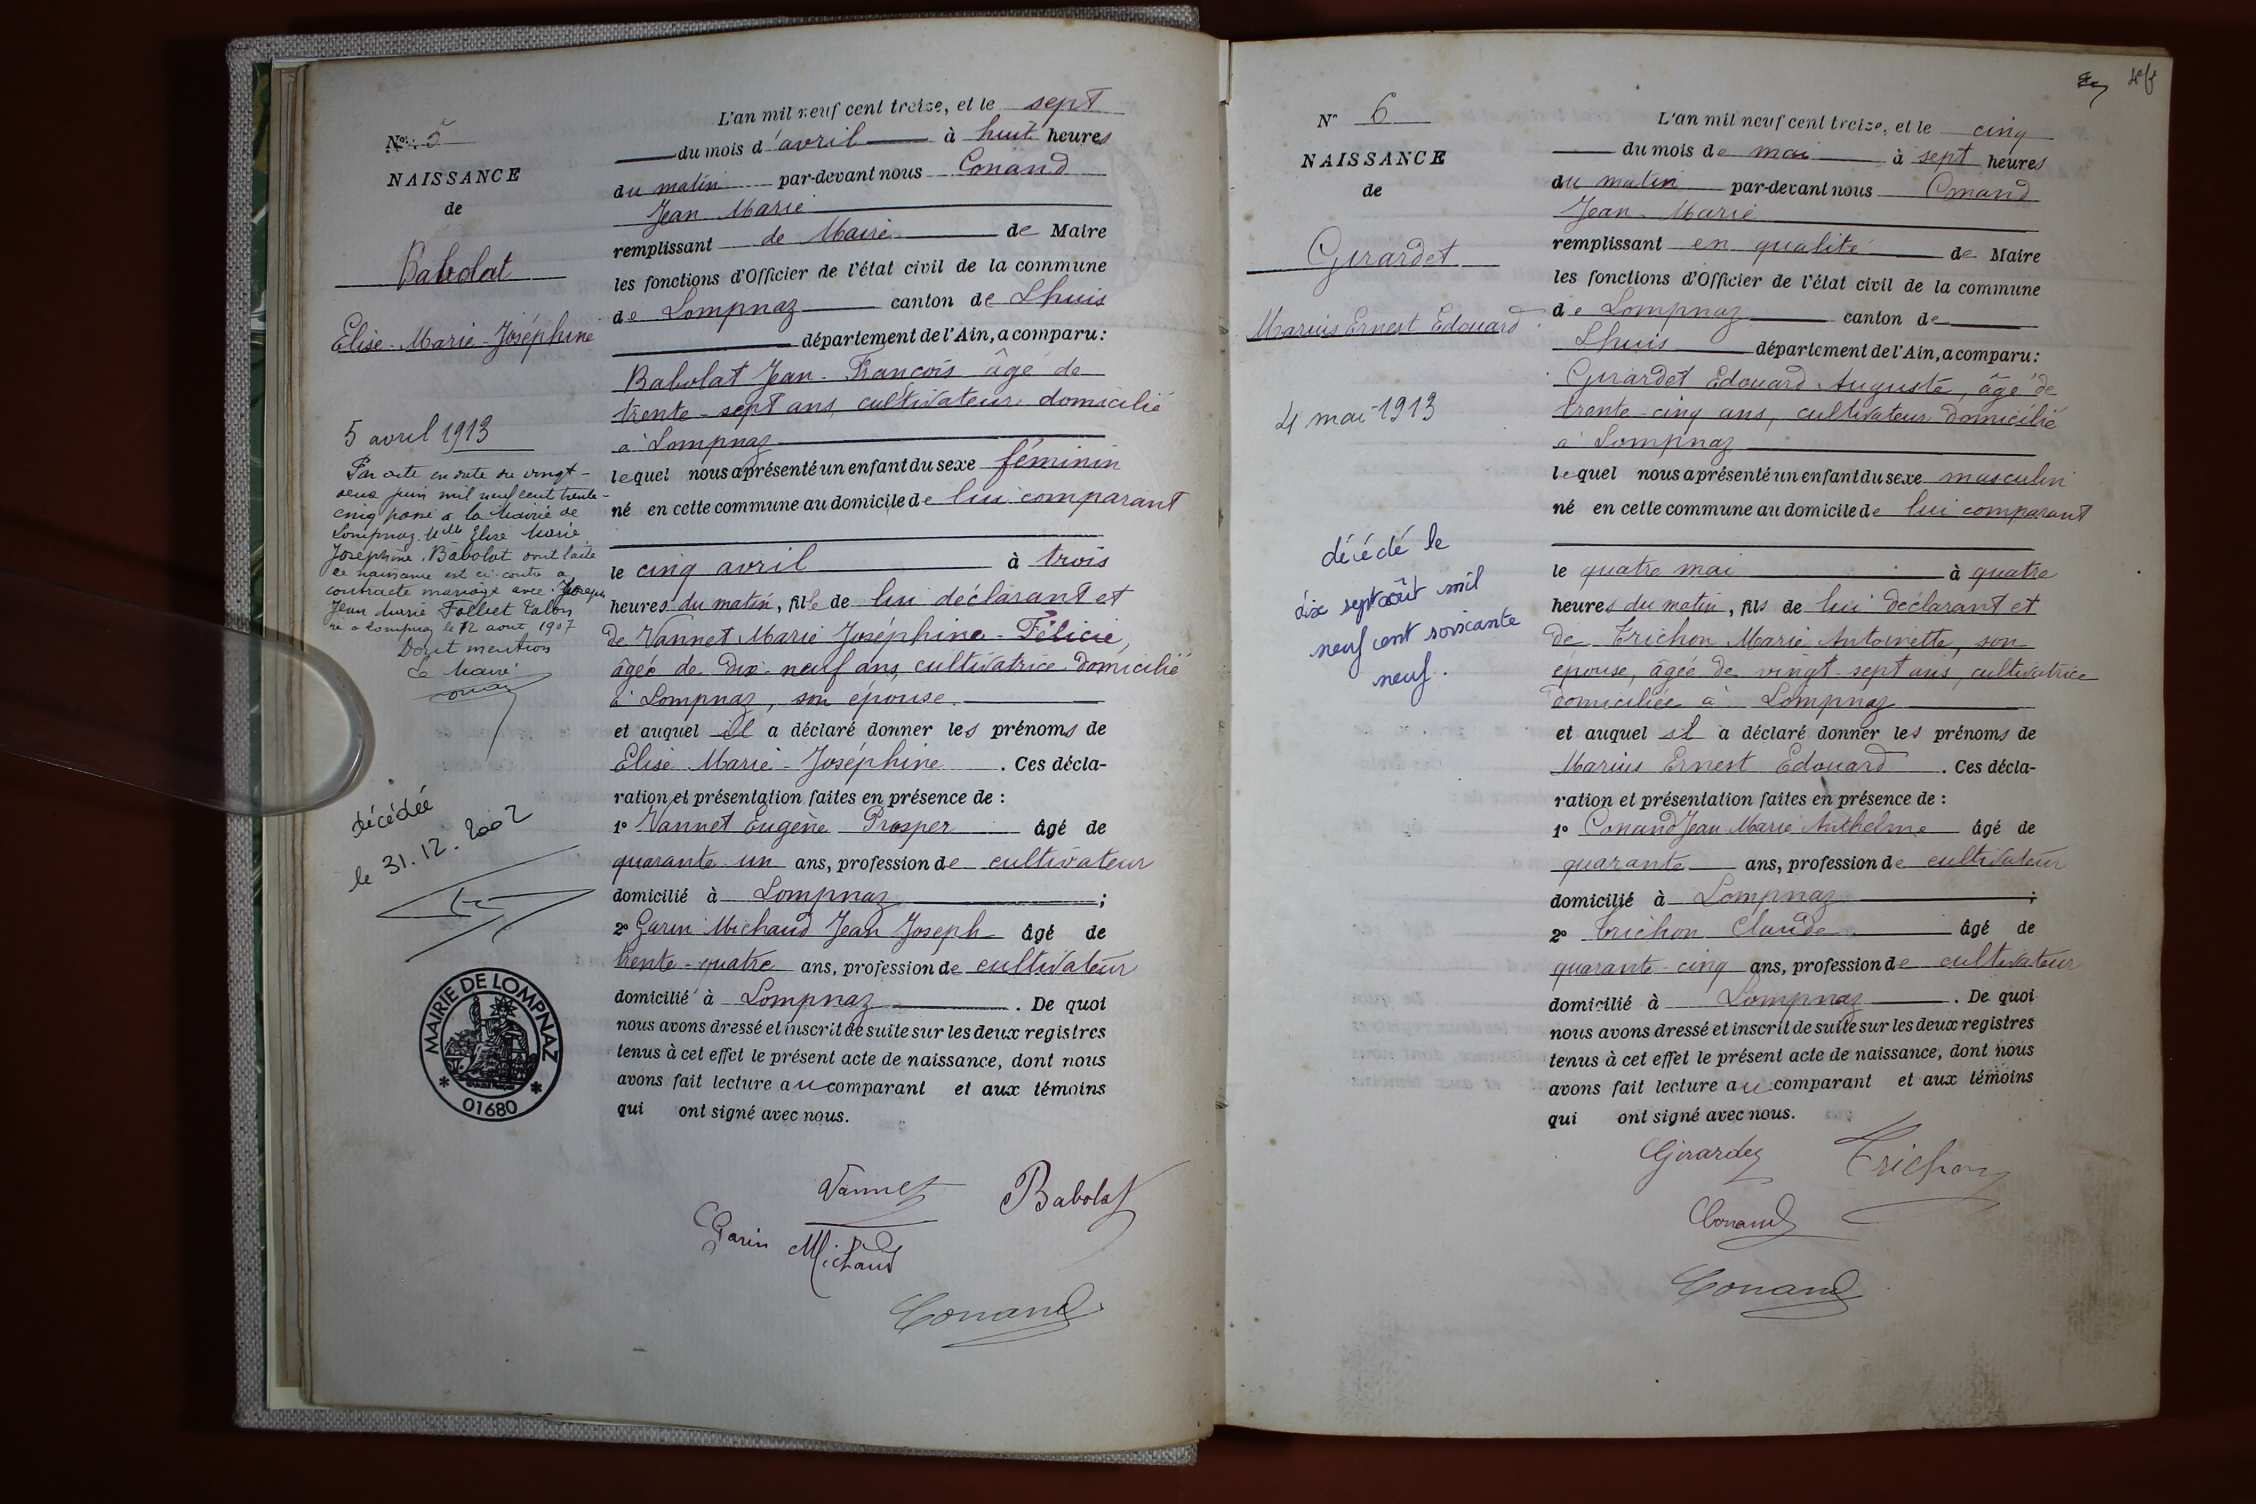 N° 5
NAISSANCE
de
Babolat
Elise-Marie-Joséphine
5 avril 1913
Par acte en date du vingt-
deux juin mil neuf cent trente-
cinq passé à la Mairie de
Lompnaz Melle Elise Marie
Joséphine Babolat dont l'acte
de naissance est ci-contre a
contracté mariage avec
Jean Marie Folliet
né à Lompnaz le 12 aout 1907
Dont mention
Le Maire
Conand
décédée
le 31.12.2002
MAIRIE DE LOMPNAZ
* 01680 *
L'an mil neuf cent treize, et le sept
du mois d'avril à huit heures
du matin par-devant nous Conand
Jean Marie
remplissant de Maire de Maire
les fonctions d'Officier de l'état civil de la commune
de Lompnaz canton de Lhuis
département de l'Ain, a comparu :
Babolat Jean-François âgé de
trente-sept ans, cultivateur domicilié
à Lompnaz
lequel nous a présenté un enfant du sexe féminin
né en cette commune au domicile de lui comparant
le cinq avril à trois
heures du matin, fille de lui déclarant et
de Vannet Marie Joséphine-Félicie,
âgée de dix-neuf ans, cultivatrice domicilié
à Lompnaz, son épouse.
et auquel il a déclaré donner les prénoms de
Elise Marie-Joséphine. Ces décla-
ration et présentation faites en présence de :
1° Vannet Eugène Prosper âgé de
quarante-un ans, profession de cultivateur
domicilié à Lompnaz ;
2° Garin Michaud Jean Joseph âgé de
trente-quatre ans, profession de cultivateur
domicilié à Lompnaz. De quoi
nous avons dressé et inscrit de suite sur les deux registres
tenus à cet effet le présent acte de naissance, dont nous
avons fait lecture au comparant et aux témoins
qui ont signé avec nous.
Vannet Babolat
Garin Michaud
Conand
N° 6
NAISSANCE
de
Girardet
Marius Ernest Edouard
4 mai 1913
décédé le
dix sept août mil
neuf cent soixante
neuf.
L'an mil neuf cent treize, et le cinq
du mois de mai à sept heures
du matin par-devant nous Conand
Jean-Marie
remplissant en qualité de Maire
les fonctions d'Officier de l'état civil de la commune
de Lompnaz canton de
Lhuis département de l'Ain, a comparu :
Girardet Edouard Auguste, âgé de
trente-cinq ans, cultivateur domicilié
à Lompnaz
lequel nous a présenté un enfant du sexe masculin
né en cette commune au domicile de lui comparant
le quatre mai à quatre
heures du matin, fils de lui déclarant et
de Trichon Marie Antoinette, son
épouse, âgée de vingt-sept ans, cultivatrice
domiciliée à Lompnaz
et auquel il a déclaré donner les prénoms de
Marius Ernest Edouard. Ces décla-
ration et présentation faites en présence de :
1° Conand Jean-Marie Anthelme âgé de
quarante ans, profession de cultivateur
domicilié à Lompnaz ;
2° Trichon Claude âgé de
quarante-cinq ans, profession de cultivateur
domicilié à Lompnaz. De quoi
nous avons dressé et inscrit de suite sur les deux registres
tenus à cet effet le présent acte de naissance, dont nous
avons fait lecture au comparant et aux témoins
qui ont signé avec nous.
Girardet Trichon
Conand
Conand